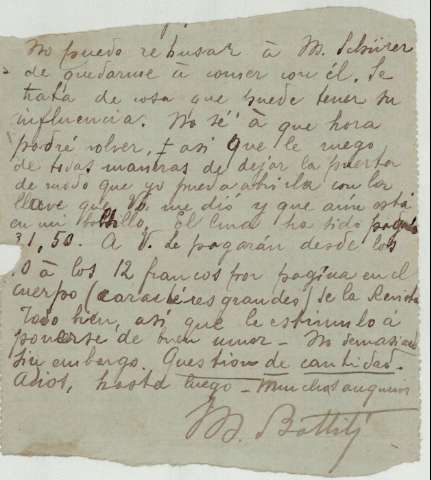 No puedo rehusar à M. Schürer
de quedarme à comer con él. Se
trata de cosa que puede tener su
influencia. No sé à que hora
podré volver, + asi que le ruego
de todas maneras de dejar la puerta
de modo que yo pueda abrirla con la
llave que V. me dió y que aún está
en mi bolsillo. El ha sido pagado
31,50. A V. le pagarán desde los
0 à los 12 francos por pagina en el
cuerpo (caractéres grandes) de la Revista
Todo bien, asi que le estimulo à
ponerse de buen umor - No demasiado
sin embargo. Question de cantidad.
Adios, hasta luego - Muchos augurios
M.